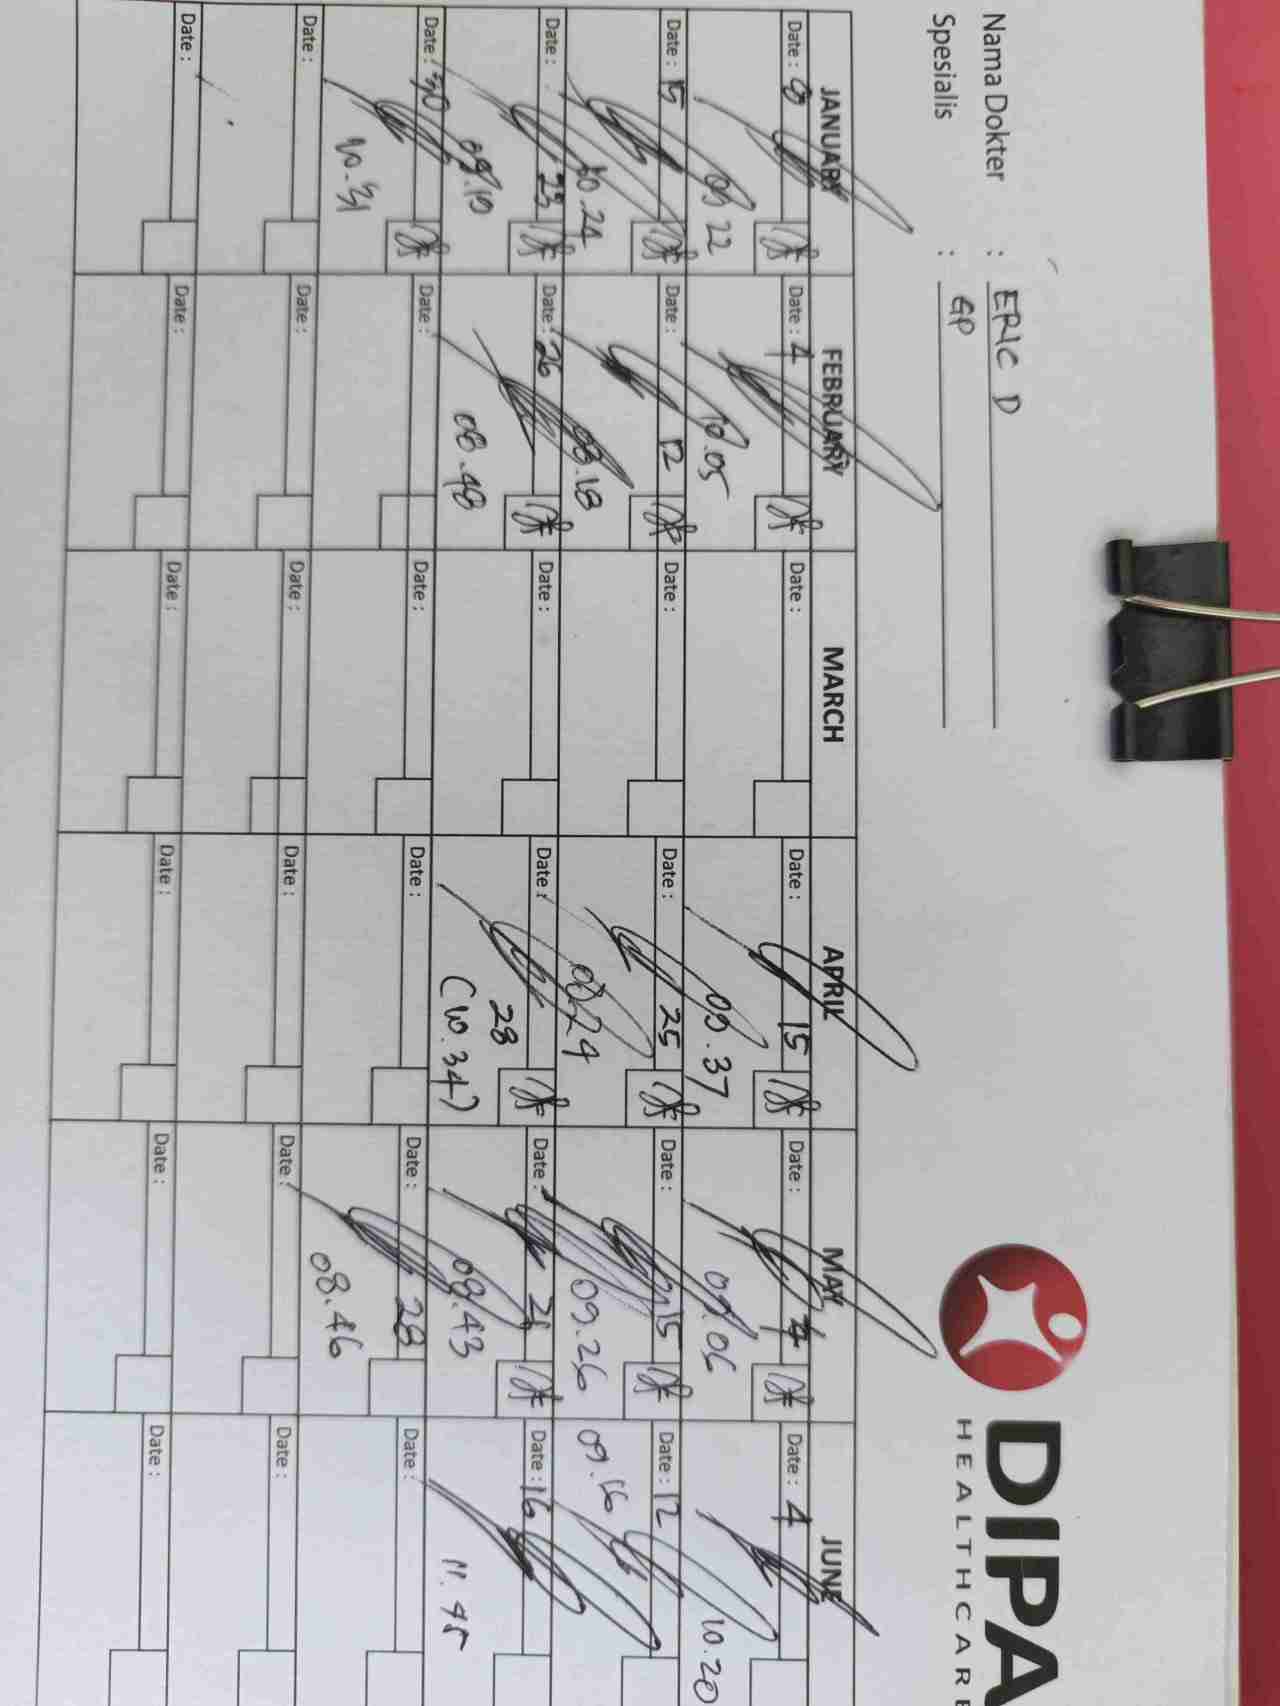 DIPA
HEALTHCARE
Nama Dokter : ERIC D
Spesialis : GP
JANUARY FEBRUARY MARCH APRIL MAY JUNE
Date : 8 Date : 4 Date : Date : 15 Date : Date : 4
09 22 10.05 09.37 09.06 10.20
Date : 15 Date : 12 Date : Date : 25 Date : 15 Date : 12
10.24 08.18 08.24 09.26 09.16
Date : 23 Date : 26 Date : Date : 28 Date : Date : 16
09.19 08.48 (10.34) 08.43 11.45
Date : 30 Date : Date : Date : Date : 28 Date :
10.31 08.46
Date : Date : Date : Date : Date : Date :
Date : Date : Date : Date : Date : Date :